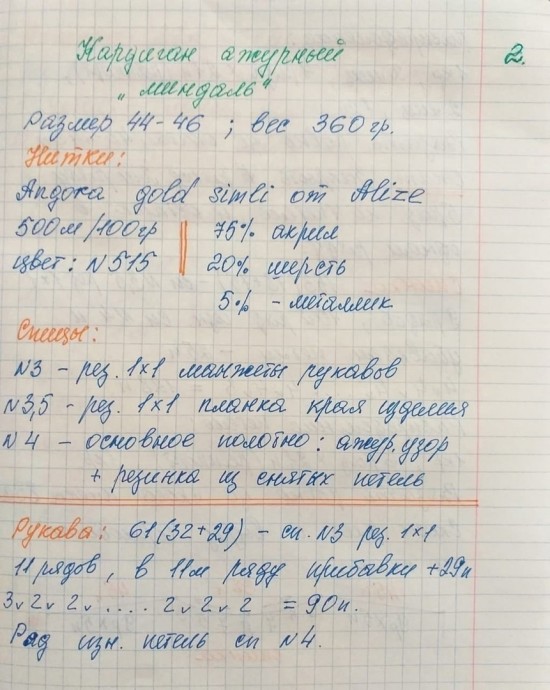 Кардиган ажурный 2.
„миндаль"
Размер 44-46 ; вес 360гр.
Нитки:
Ангора gold simli от Alize
500м/100гр 75% акрил
цвет: N515 20% шерсть
5% - металлик
Спицы:
N3 - рез. 1x1 манжеты рукавов
N3,5 - рез. 1x1 планка края изделия
N4 - основное полотно: ажур. узор
+ резинка из снятых петель
Рукава: 61(32+29) - сп. N3 рез. 1x1
11 рядов, в 11м ряду прибавки +29п
3v 2v 2v .... 2v 2v 2 = 90п.
Ряд изн. петель сп N4.